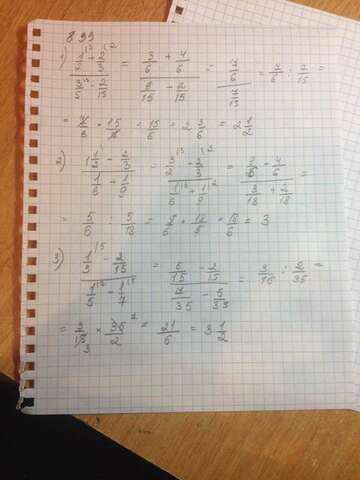 899
1) (1/2 + 2/3) / (3/5 - 2/15) = (3/6 + 4/6) / (9/15 - 2/15) = (7/6) / (7/15) = 7/6 : 7/15 =
= 7/6 × 15/7 = 15/6 = 2 3/6 = 2 1/2
2) (1 1/2 - 2/3) / (1/6 + 1/9) = (3/2 - 2/3) / (1/6 + 1/9) = (9/6 - 4/6) / (3/18 + 2/18) =
= 5/6 : 5/18 = 5/6 × 18/5 = 18/6 = 3
3) (1/3 - 2/15) / (1/5 - 1/7) = (5/15 - 2/15) / (7/35 - 5/35) = 3/15 : 2/35 =
= 3/15 × 35/2 = 21/6 = 3 1/2